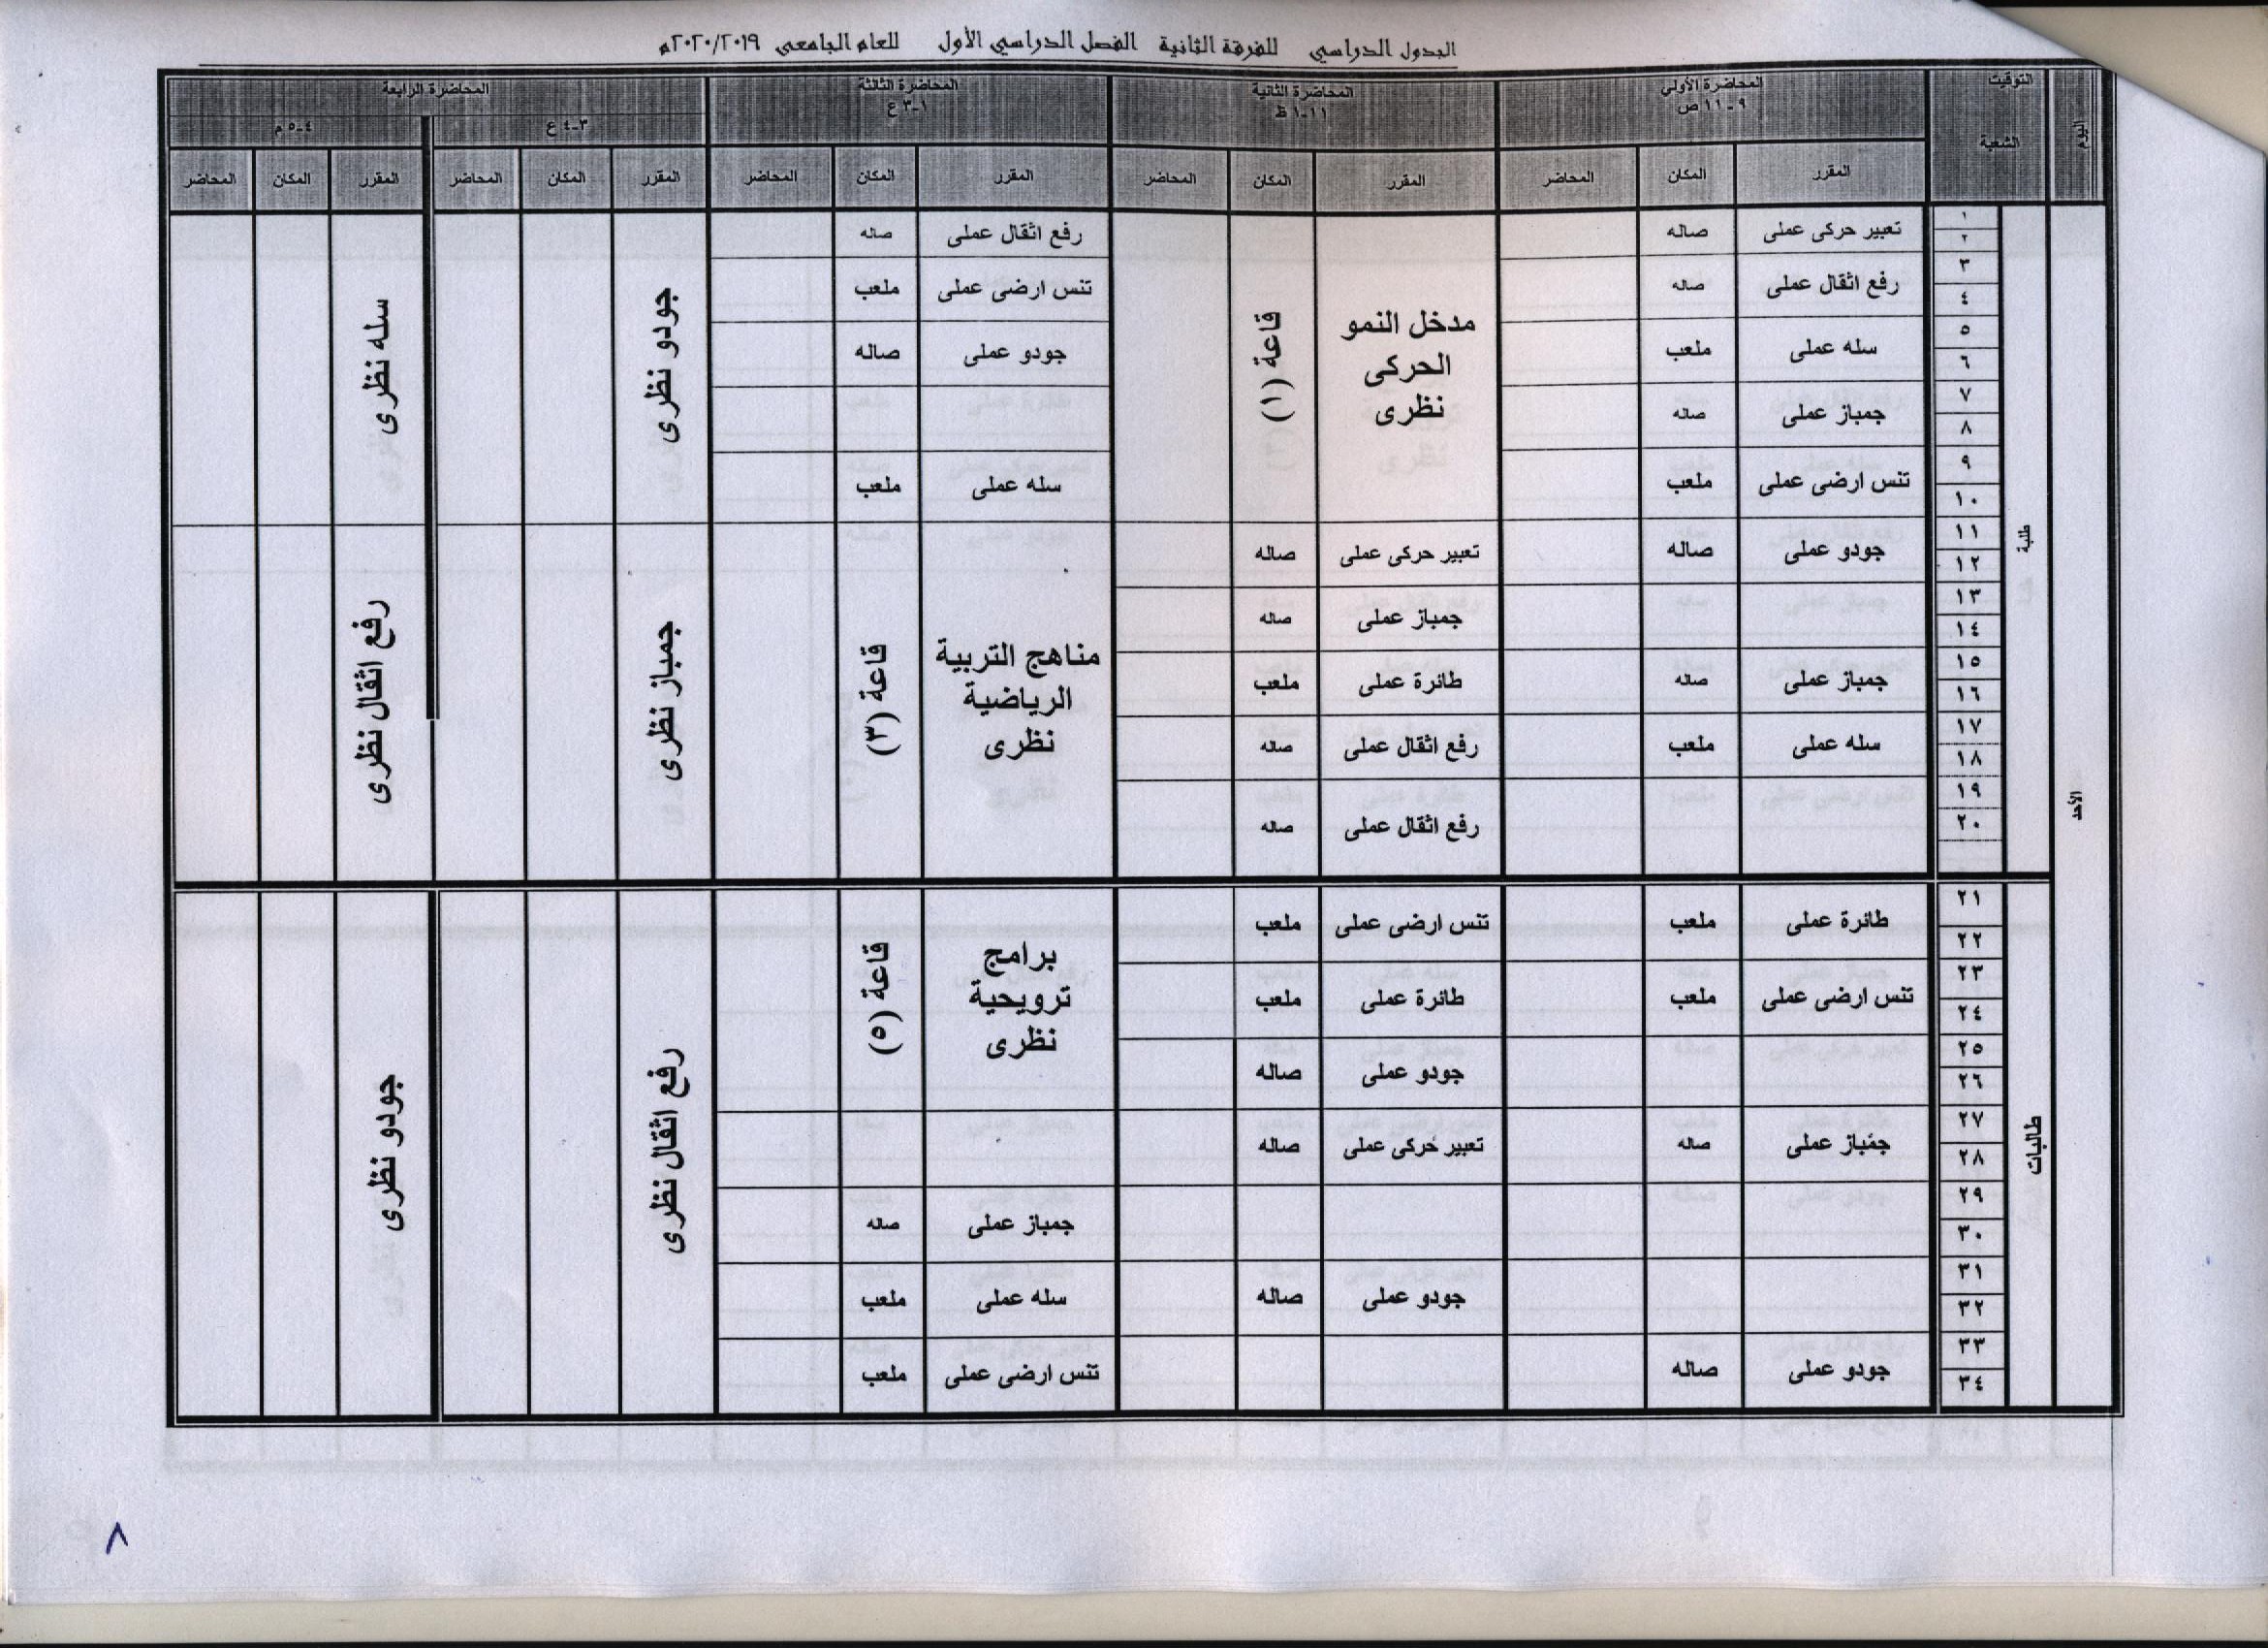 الجدول الدراسي للفرقة الثانية الفصل الدراسي الأول للعام الجامعى ٢٠٢٠/٢٠١٩م
اليوم
التوقيت
الشعبة
المحاضرة الأولي
٩-١١ ص
المحاضرة الثانية
١١-١ ظ
المحاضرة الثالثة
١-٣ ع
المحاضرة الرابعة
٣-٤ ع
٤-٥ م
المقرر المكان المحاضر المقرر المكان المحاضر المقرر المكان المحاضر المقرر المكان المحاضر المقرر المكان المحاضر
الأحد
طلبة
١
٢
تعبير حركى عملى صاله
رفع اثقال عملى صاله
٣
٤
رفع اثقال عملى صاله
تنس ارضى عملى ملعب
٥
٦
سله عملى ملعب
جودو عملى صاله
٧
٨
جمباز عملى صاله
٩
١٠
تنس ارضى عملى ملعب
سله عملى ملعب
مدخل النمو
الحركى
نظرى
قاعة (١)
جودو نظرى
سله نظرى
١١
١٢
جودو عملى صاله
تعبير حركى عملى صاله
١٣
١٤
جمباز عملى صاله
١٥
١٦
جمباز عملى صاله
طائرة عملى ملعب
١٧
١٨
سله عملى ملعب
رفع اثقال عملى صاله
١٩
٢٠
رفع اثقال عملى صاله
مناهج التربية
الرياضية
نظرى
قاعة (٣)
جمباز نظرى
رفع اثقال نظرى
طالبات
٢١
٢٢
طائرة عملى ملعب
تنس ارضى عملى ملعب
٢٣
٢٤
تنس ارضى عملى ملعب
طائرة عملى ملعب
٢٥
٢٦
جودو عملى صاله
برامج
ترويحية
نظرى
قاعة (٥)
٢٧
٢٨
جمباز عملى صاله
تعبير حركى عملى صاله
٢٩
٣٠
جمباز عملى صاله
٣١
٣٢
جودو عملى صاله
سله عملى ملعب
٣٣
٣٤
جودو عملى صاله
تنس ارضى عملى ملعب
رفع اثقال نظرى
جودو نظرى
٨